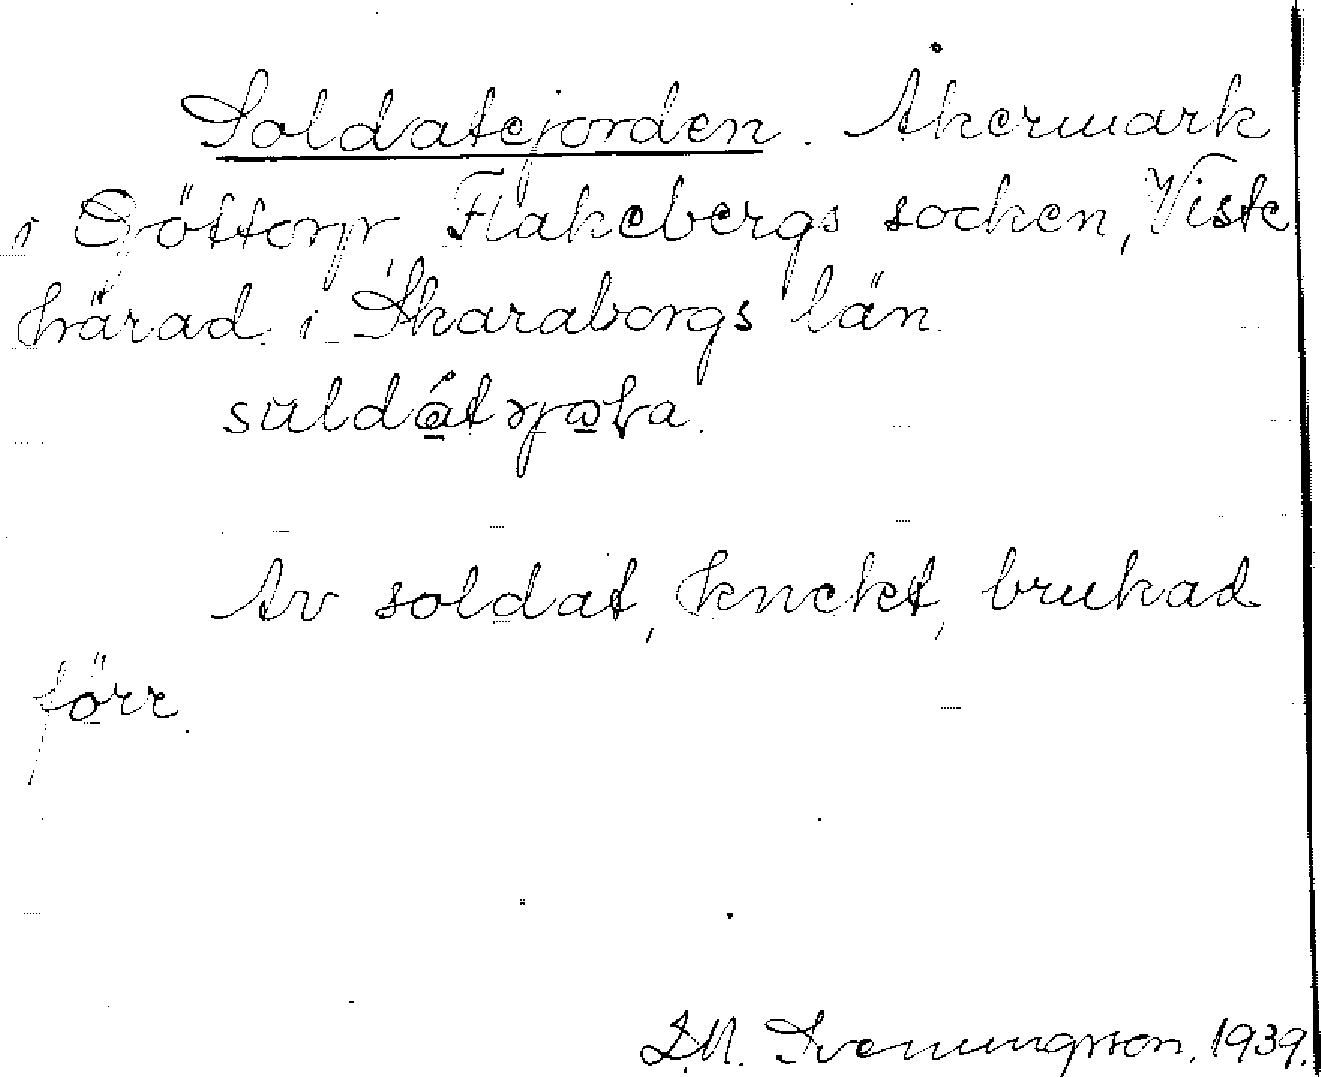 Soldatejorden. Åkermark
i Göttorp, Flakebergs socken, Viste
härad i Skaraborgs län.
Av soldat, knekt, brukad
förr.
Svenungsson. 1939.